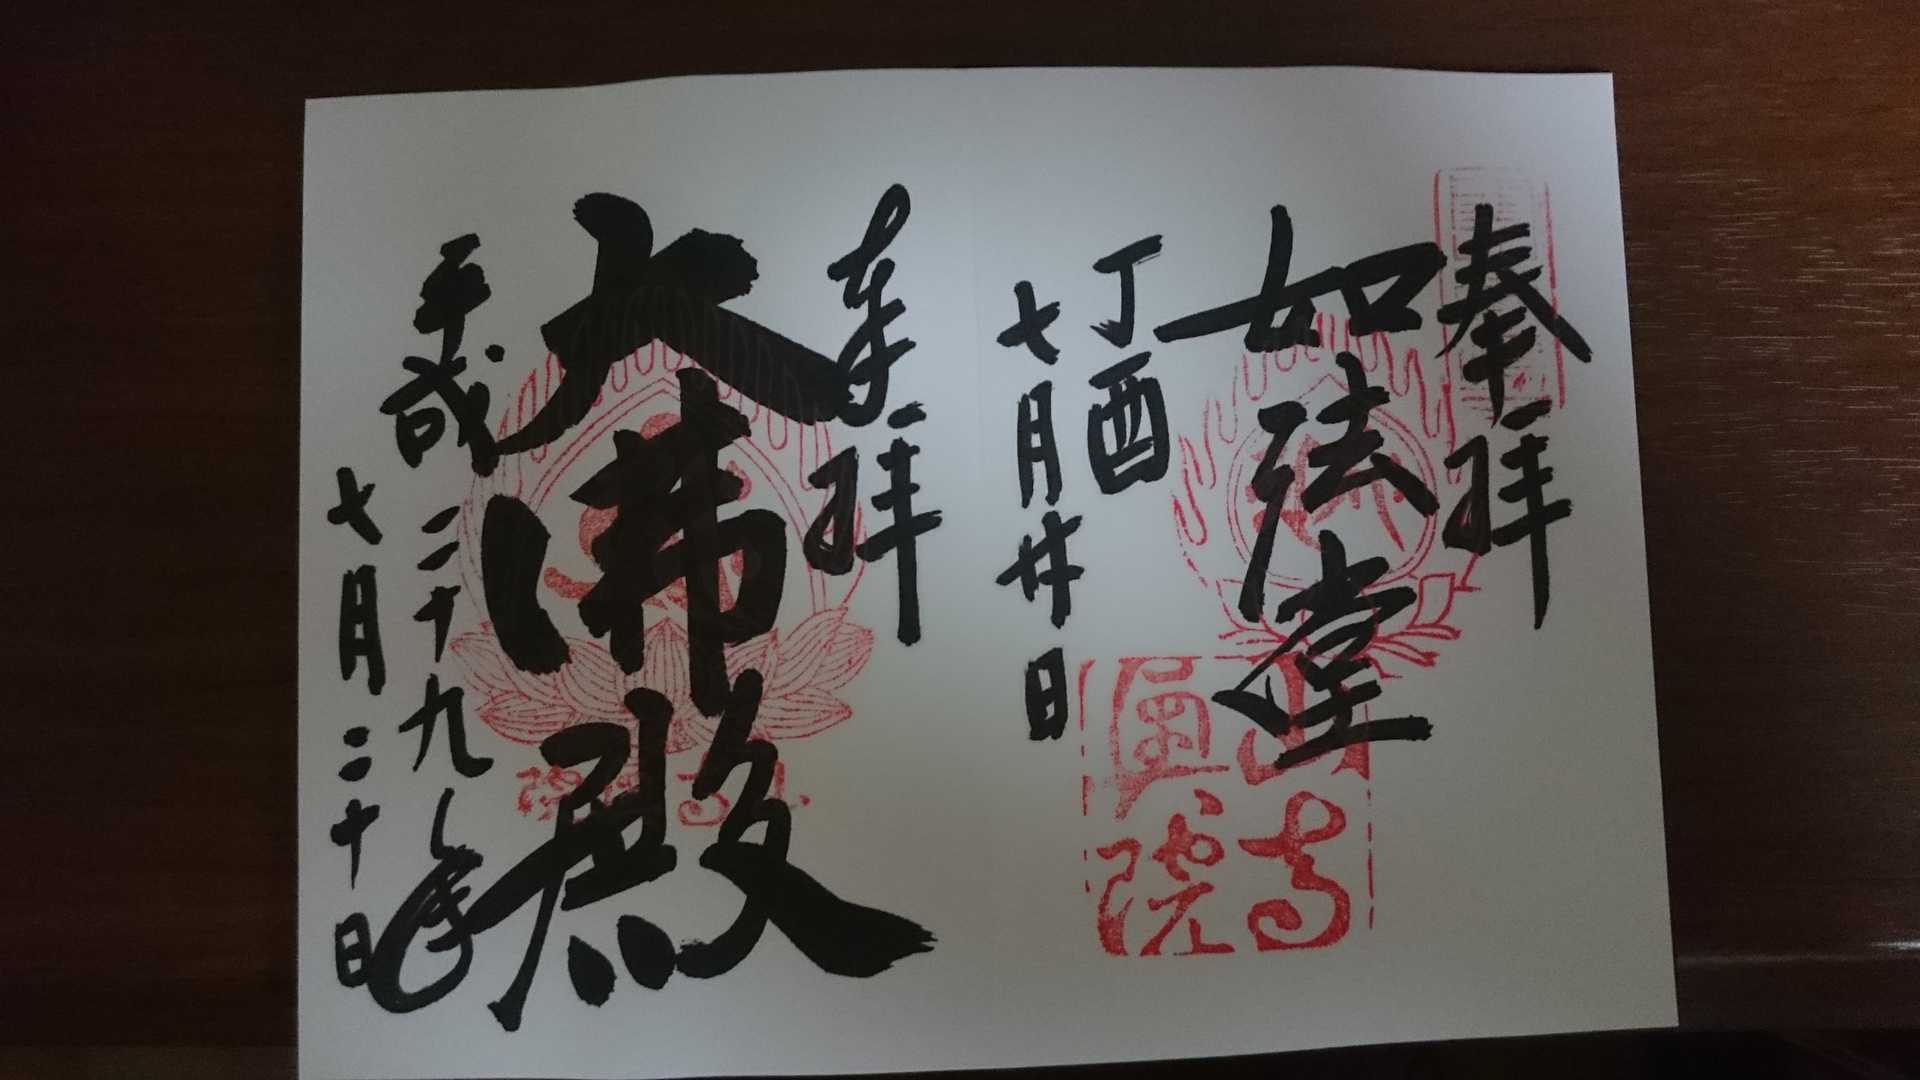 奉拝
如法堂
丁酉
七月廿日
奉拝
大佛殿
平成二十九年
七月二十日